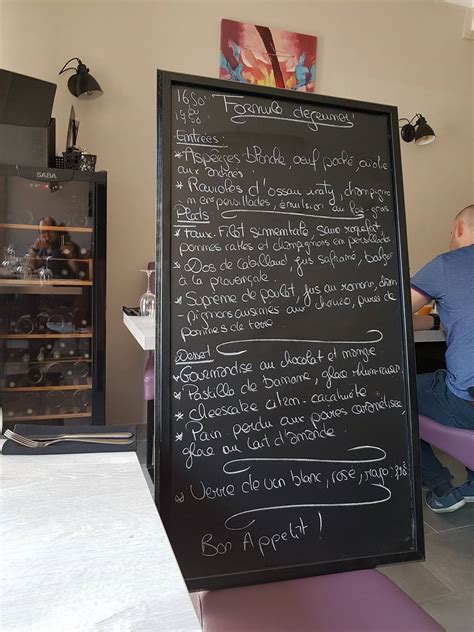 SABA
16€50
19€50
Formule déjeuner
Entrées:
* Asperges blonde, oeuf poché, aïolie
aux
* Ravioles d'ossau iraty, champigno
n en persillades, émulsion au foie gras.
Plats
* Faux-Filet simmentale, sauce roquefort,
pommes rattes et champignons en persillades
* Dos de cabillaud, jus safrané,
à la provençale.
* Supreme de poulet, jus au romarin, cham-
pignons cuisinés aux chorizo, purée de
pommes de terre.
Dessert
* Gourmandise au chocolat et mangue
* Pastilla de banane, glace rhum-raisin
* Cheesecake citron-cacahuète
* Pain perdu aux poires caramélisée,
glace au lait d'amande.
* Verre de vin blanc, rosé, rouge
Bon Appetit !